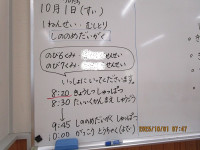 10月1日(すい)
1ねんせい むしとり
しののめだいがく
のび6くみ せんせい
のび7くみ せんせい
いっしょにいってくださいます。
8:20 きょうしつしゅっぱつ
8:30 たいいくかんまえ しゅうごう
9:45 しののめだいがく しゅっぱつ
10:00 がっこう とうちゃく(よてい)
2025/10/01 07:47